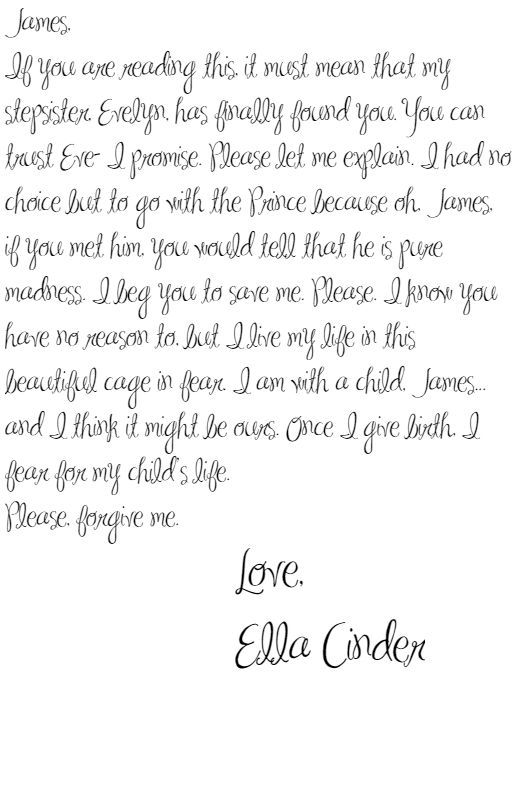 James,
If you are reading this, it must mean that my
stepsister, Evelyn, has finally found you. You can
trust Eve- I promise. Please let me explain. I had no
choice but to go with the Prince because oh, James,
if you met him, you would tell that he is pure
madness. I beg you to save me. Please. I know you
have no reason to, but I live my life in this
beautiful cage in fear. I am with a child, James...
and I think it might be ours. Once I give birth, I
fear for my child's life.
Please, forgive me.
Love,
Ella Cinder